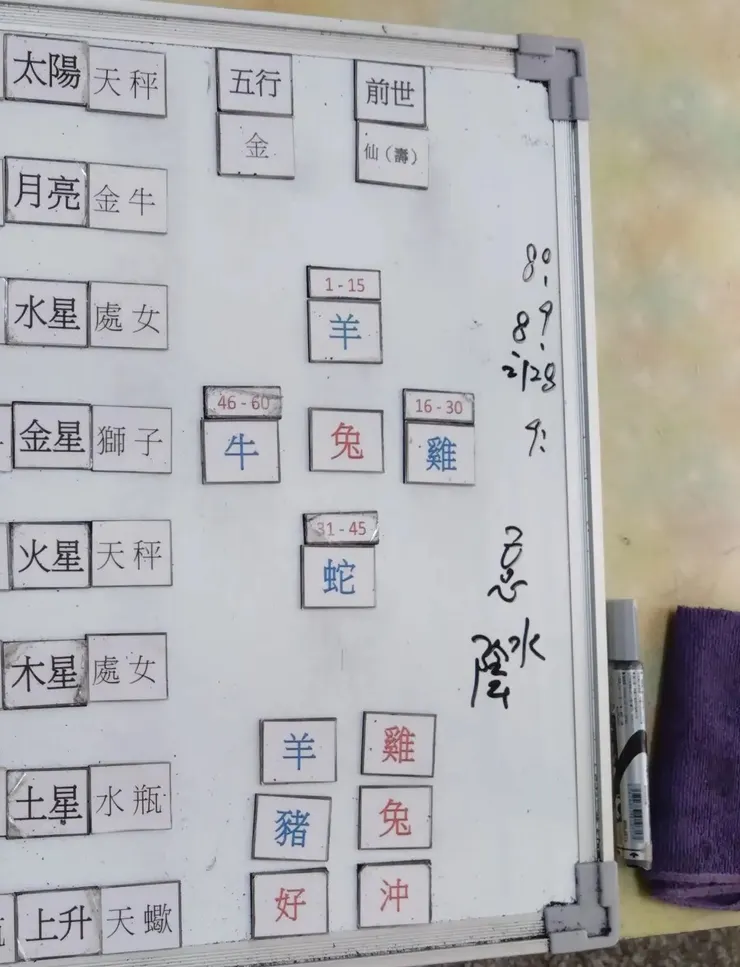 太陽 天秤
五行
前世
金
仙（壽）
月亮 金牛
8:
1 - 15
水星 處女
羊
89:
2/28
46 - 60
16 - 30
金星 獅子
牛 兔 雞
9:
31 - 45
火星 天秤
蛇
忌
水
木星 處女
羊 雞
土星 水瓶
豬 兔
上升 天蠍
好 沖